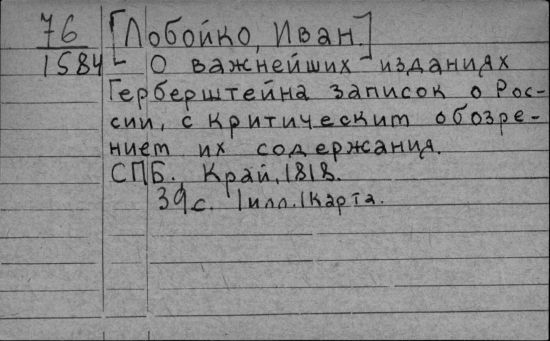 76 [Лобойко, Иван.]
1584 О важнейших изданиях
Герберштейна записок о Рос-
сии, с критическим обозре-
нием их содержания.
СПБ., Край, 1818.
39с. 1 илл. 1 карта.